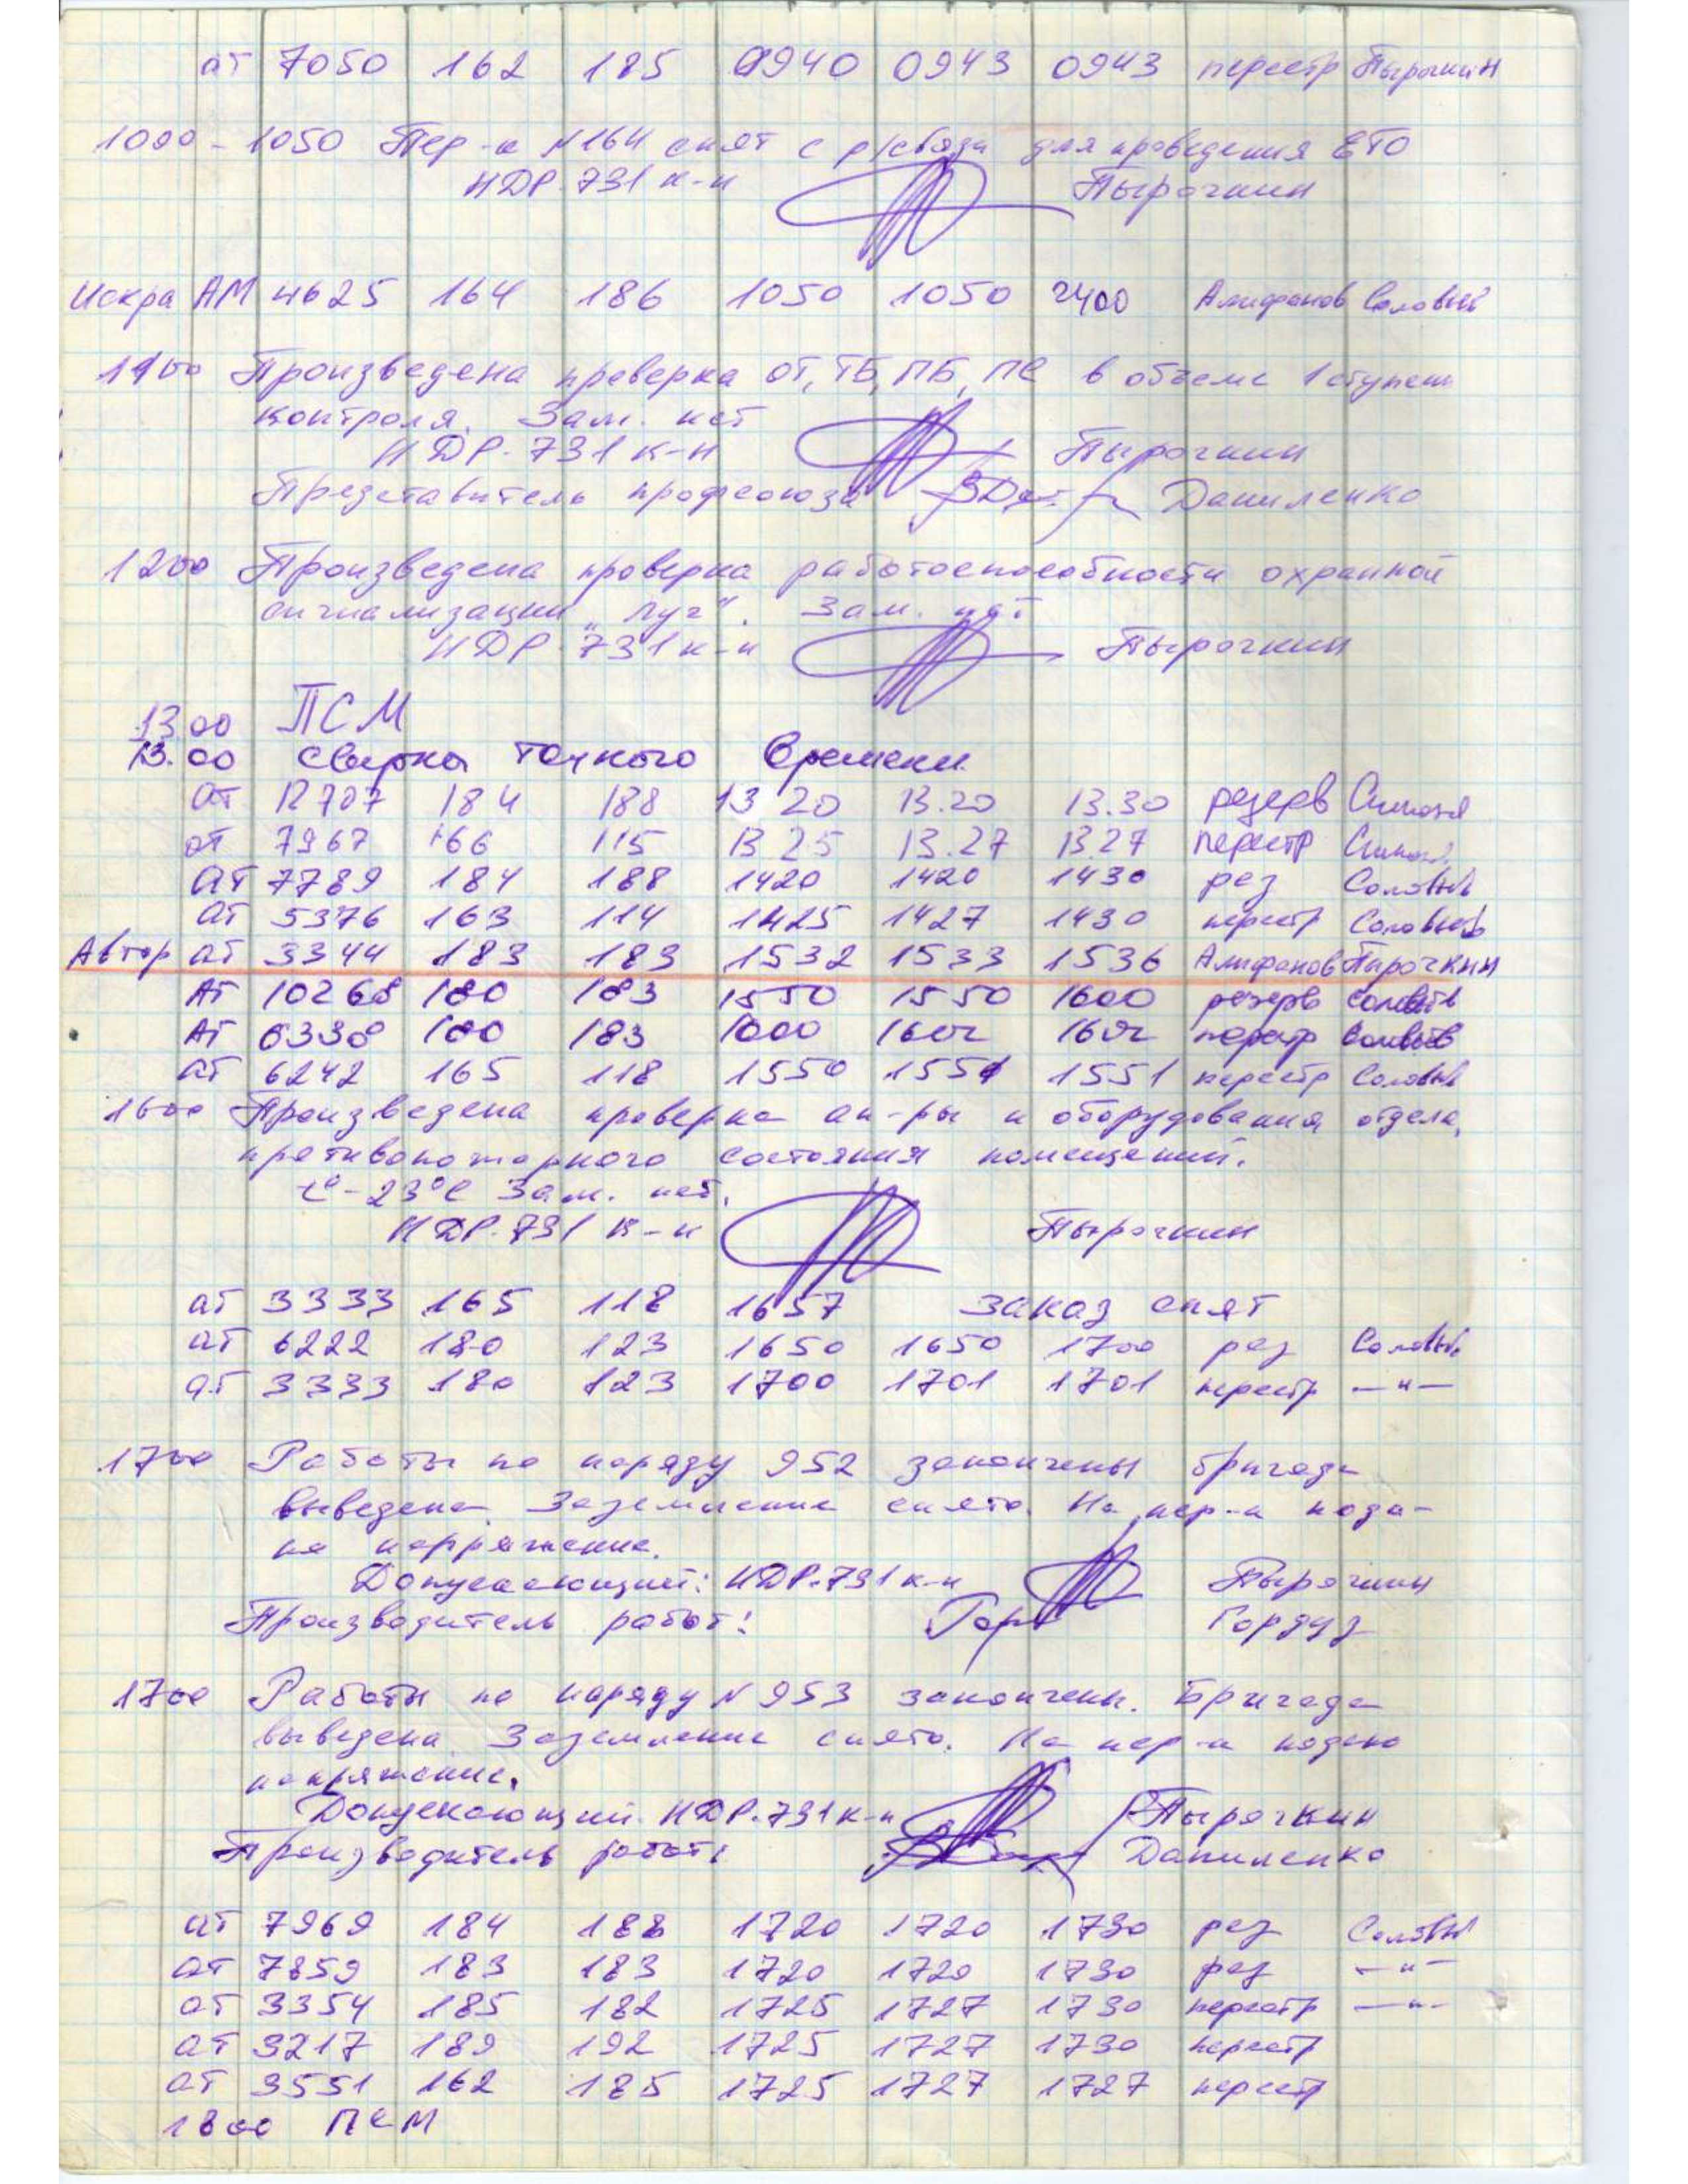 ат 7050 162 185 0940 0943 0943 перестр Пырочкин
1000 - 1050 Пер-к N164 снят с р/связи для проведения ЕТО
НДР-731 к-н Пырочкин
Искра АМ 4625 164 186 1050 1050 2400 Алифанов Соловьёв
1100 Произведена проверка ОТ, ТБ, ПБ, ПС в объеме 1 ступени
контроля. Зам. нет
НДР-731 к-н Пырочкин
Представитель профсоюза Даниленко
1200 Произведена проверка работоспособности охранной
сигнализации „Луч". Зам. нет
НДР-731 к-н Пырочкин
13 00 ПСМ
13.00 сверка точного времени
ат 12707 184 188 13 20 13.20 13.30 резерв
ат 7967 166 115 13 25 13.27 13.27 перестр
ат 7789 184 188 1420 1420 1430 рез Соловьёв
ат 5376 163 114 1425 1427 1430 перестр Соловьёв
Автор ат 3344 183 183 1532 1533 1536 Алифанов Пырочкин
Ат 10268 180 183 1550 1550 1600 резерв Соловьёв
Ат 6338 180 183 1600 1602 1602 перестр Соловьёв
ат 6242 165 118 1550 1551 1551 перестр Соловьёв
1600 Произведена проверка ап-ры и оборудования отдела,
противопожарного состояния помещений.
t° - 23°С Зам. нет.
НДР-731 к-н Пырочкин
ат 3333 165 118 1657 заказ снят
ат 6222 180 123 1650 1650 1700 рез Соловьёв
ат 3333 180 123 1700 1701 1701 перестр —"—
1700 Работы по наряду 952 закончены бригада
выведена. Заземление снято. На пер-к пода-
но напряжение.
Допускающий: НДР-731 к-н Пырочкин
Производитель работ: Гордуз
1700 Работы по наряду N 953 закончены. Бригада
выведена. Заземление снято. На пер-к подано
напряжение.
Допускающий. НДР-731 к-н Пырочкин
Производитель работ: Даниленко
ат 7969 184 188 1720 1720 1730 рез Соловьёв
ат 7859 183 183 1720 1720 1730 рез —"—
ат 3354 185 182 1725 1727 1730 перестр —"—
ат 3217 189 192 1725 1727 1730 перестр
ат 3551 162 185 1725 1727 1727 перестр
1800 ПСМ